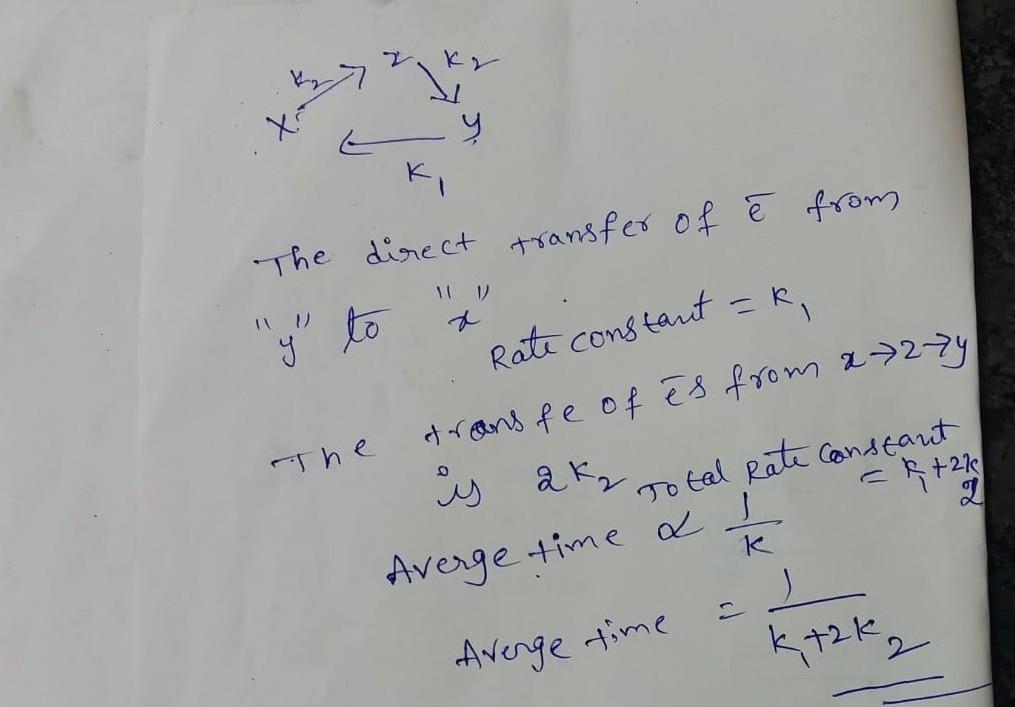 K2 z K2
X y
K1
The direct transfer of ē from
"y" to "x"
Rate constant = K1
The transfe of ēs from x→z→y
is 2K2 Total Rate Constant = K1+2K2
Averge time ∝ 1/K
Averge time = 1/K1+2K2